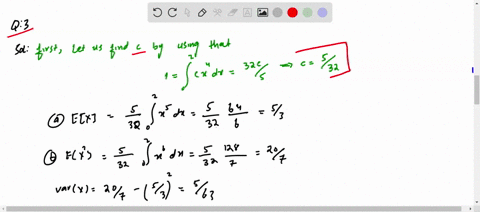 Q:3
Sol: first, Let us find c by using that
1 = ∫₀² cx⁴ dx = 32c/5 ⟹ c = 5/32
ⓐ E[X] = 5/32 ∫₀² x⁵ dx = 5/32 64/6 = 5/3
ⓑ E(X²) = 5/32 ∫₀² x⁶ dx = 5/32 128/7 = 20/7
var(X) = 20/7 - (5/3)² = 5/63